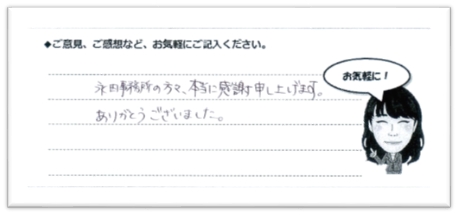 ◆ご意見、ご感想など、お気軽にご記入ください。
お気軽に!
永田事務所の方々、本当に感謝申し上げます。
ありがとうございました。